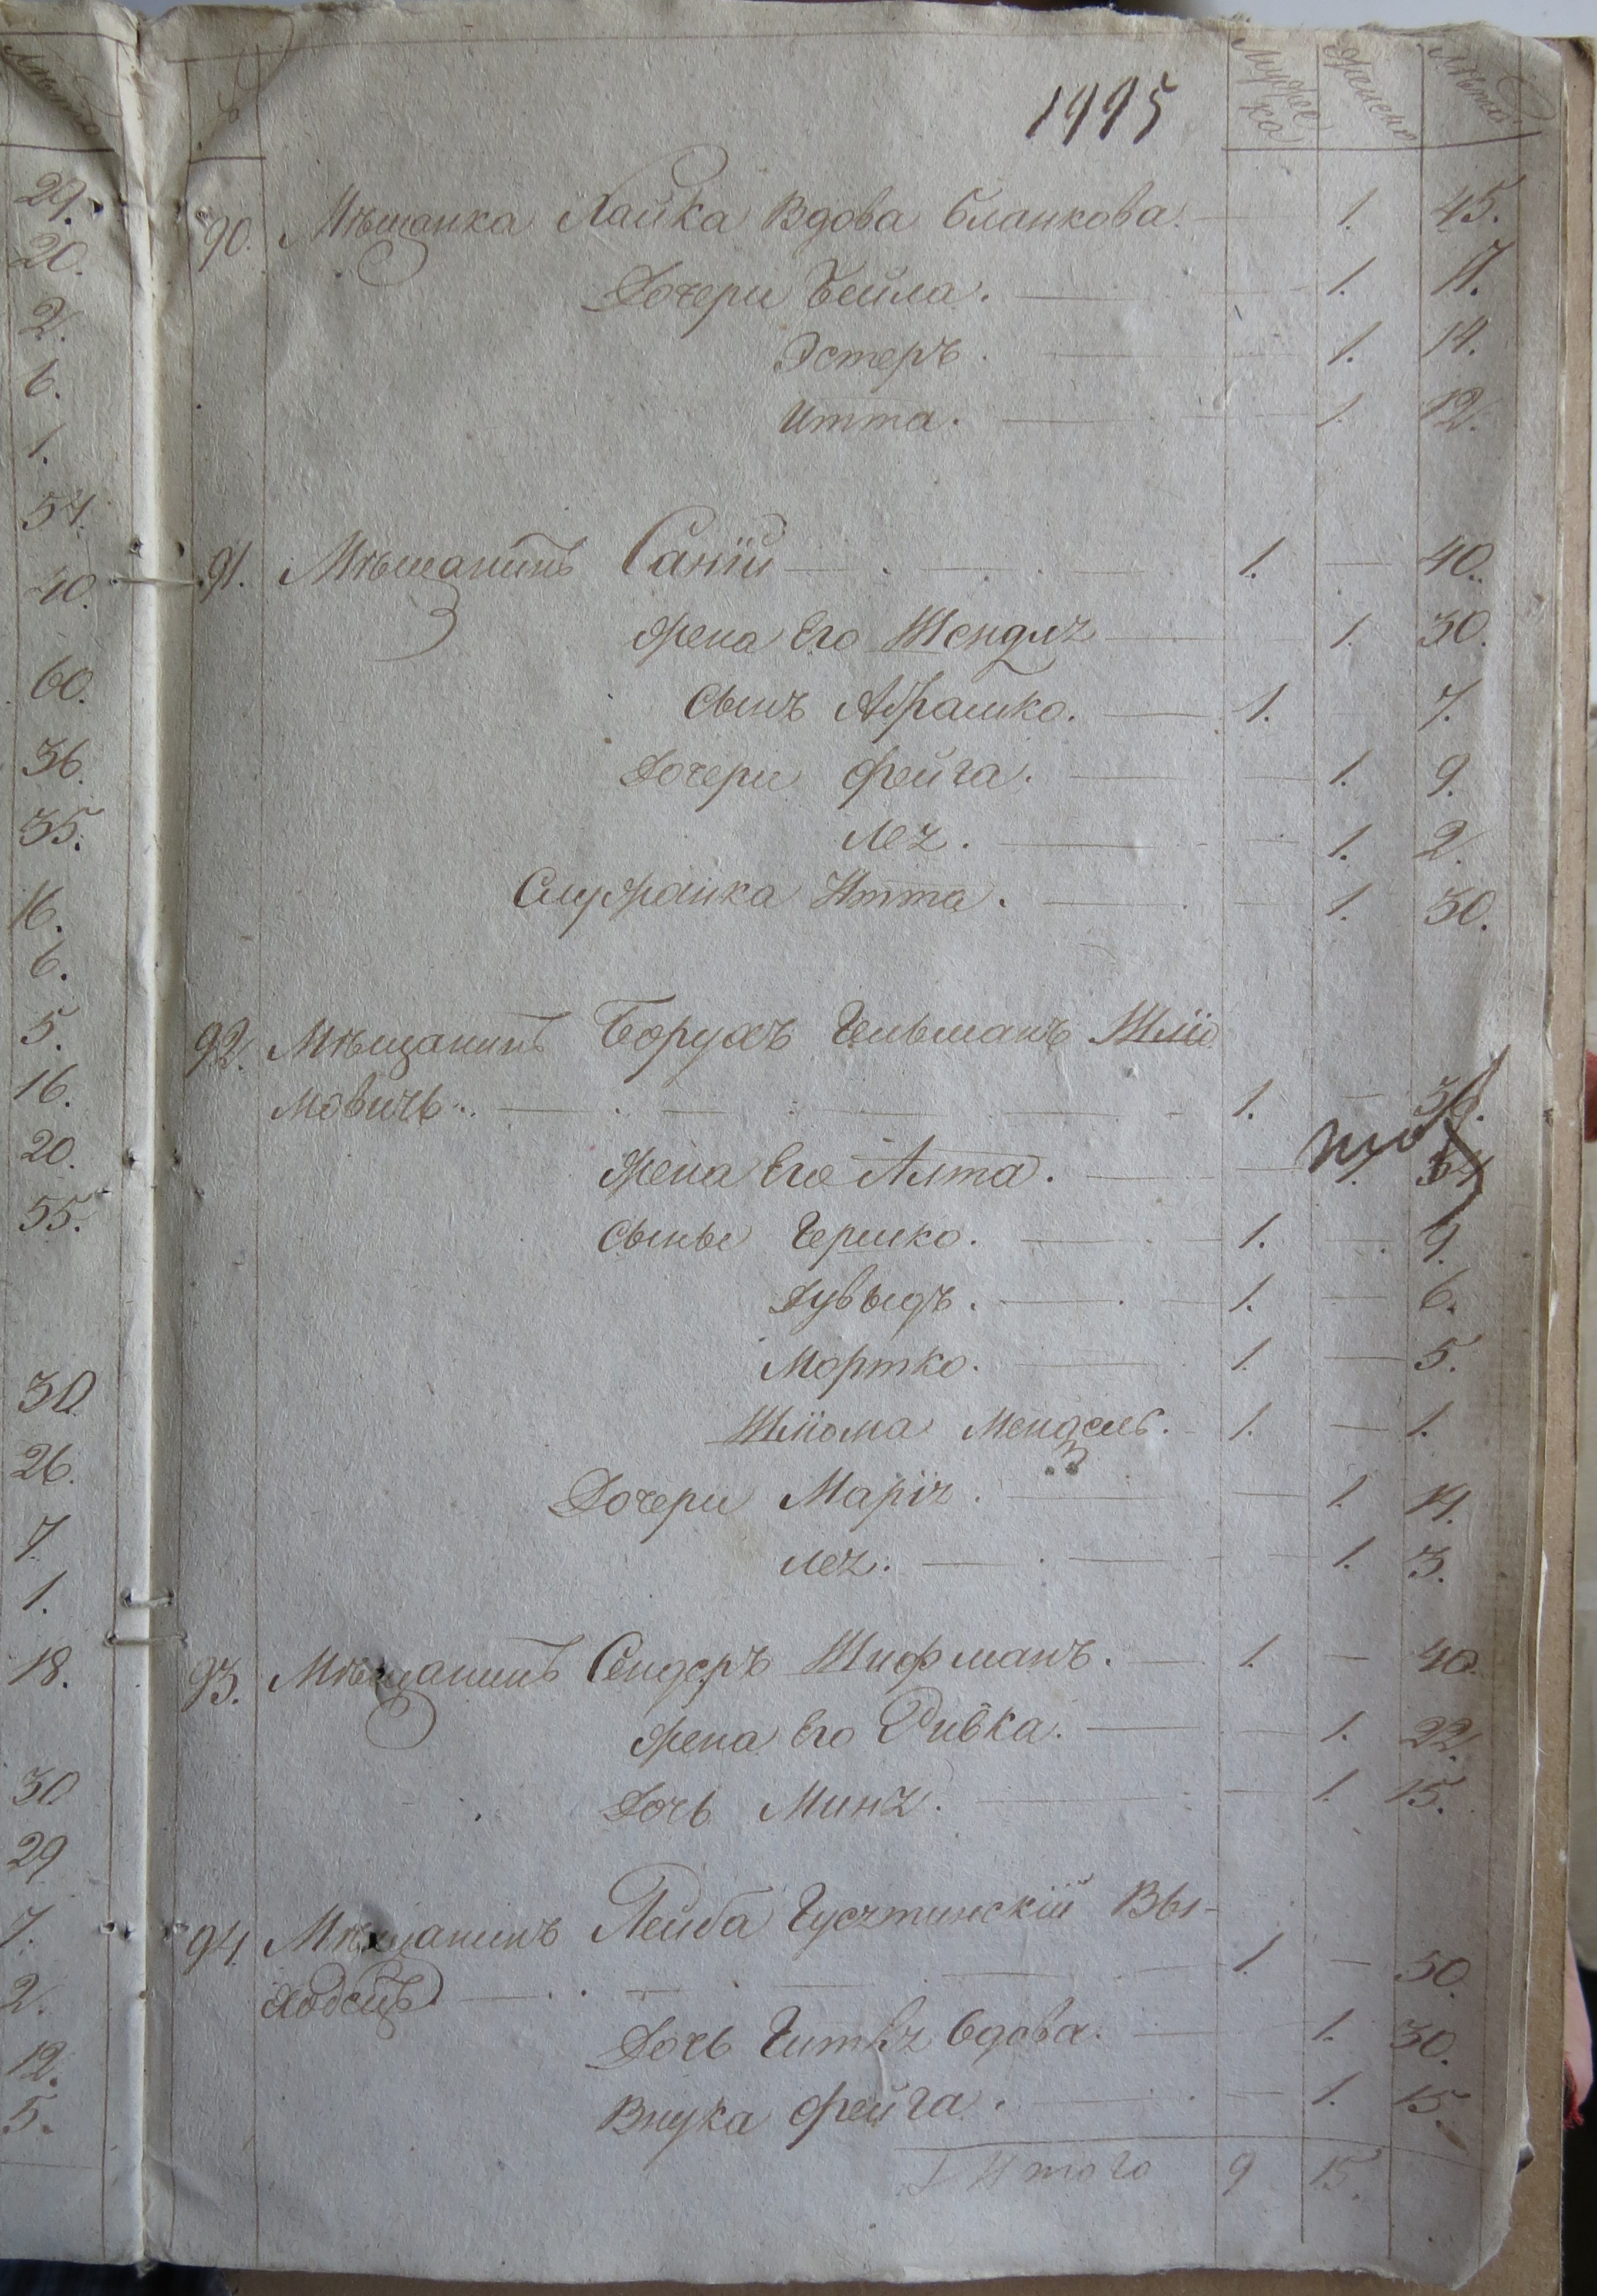 лѣта
Мужес
ка
Женска
лѣта
1995
29.
20.
2.
6.
1.
54.
40.
60.
36.
35.
16.
6.
5.
16.
20.
55.
30.
26.
7
1.
18.
30
29
7.
2.
12.
5.
90. Мѣщанка Хайка Вдова бланкова. 1. 45.
Дочери Бейла. 1. 17.
Эстеръ. 1. 14.
Итта. 1. 12.
91. Мѣщанинъ Саній 1. 40.
Жена Его Шендля 1. 30.
Сынъ Абрашко. 1. 7.
Дочери Фейга. 1. 9.
Лея. 1. 2.
Служанка Итта. 1. 30.
92. Мѣщанинъ Борухъ Гельманъ Шліо
мовичъ. 1. 36.
Жена Его Алта. 1. 34
Сыны Гершко. 1. 9.
Дувыдъ. 1. 6.
Мортко. 1. 5.
Шліома Мендель. 1. 1.
Дочери Марія. 1. 14.
Лея. 1. 3.
93. Мѣщанинъ Сендеръ Шифманъ. 1. 40.
Жена Его Ривка. 1. 22.
Дочь Миня. 1. 15.
94. Мѣщанинъ Лейба Гусятинскій Вы-
ходецъ 1. 50.
Дочь Гитля вдова. 1. 30.
Внука Фейга. 1. 15.
Итого 9 15.